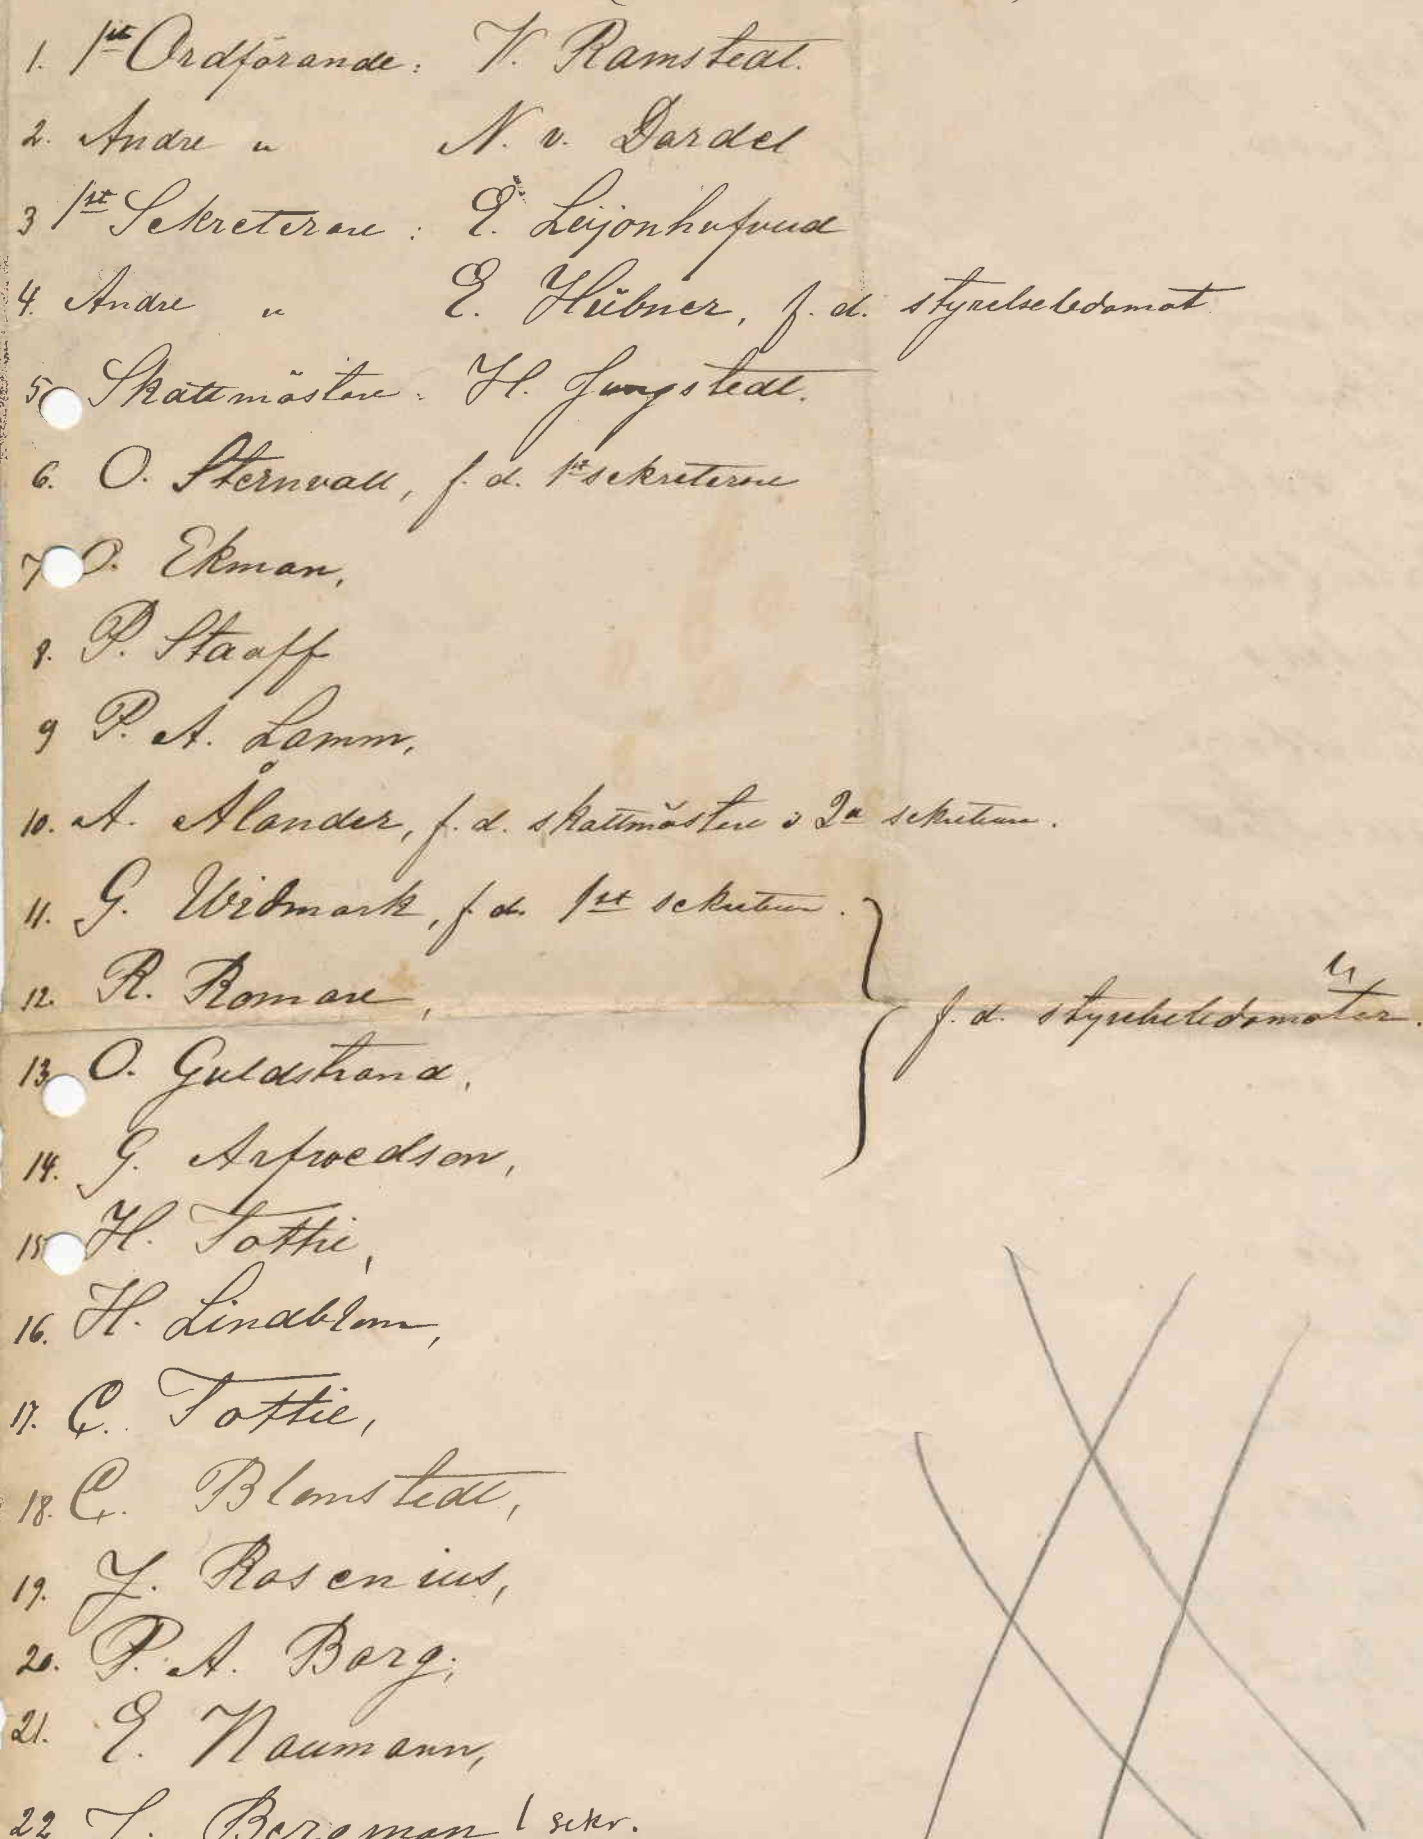 1. 1st Ordförande: V. Ramstedt.
2. Andre " N. v. Dardel
3 1st Sekreterare: E. Leijonhufvud
4. Andre " E. Hübner, f. d. styrelseledamot
5. Skattmästare: H. Ljungstedt.
6. O. Sternvall, f. d. 1st sekreterare
7 O. Ekman,
8. P. Staaff
9 P. A. Lamm,
10. A. Ålander, f. d. skattmästare o 2a sekreterare.
11. G. Widmark, f. d. 1st sekreterare.
12. R. Romare,
f. d. styrelseledamoter.
13. O. Guldstrand,
14. G. Arfwedson,
15. H. Tottie,
16. H. Lindblom,
17. C. Tottie,
18. C. Blomstedt,
19. J. Rosenius,
20. P. A. Borg,
21. E. Naumann,
22 J. Bergman 1 sekr.